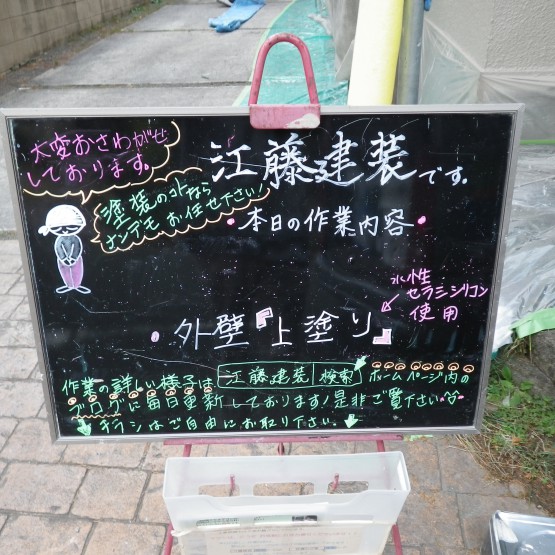 大変おさわがせ
しております。
江藤建装です。
塗装の事なら
ナンデモお任せ下さい!
本日の作業内容
外壁『上塗り』
水性
セラミシリコン
使用
作業の詳しい様子は 江藤建装 検索 ホームページ内の
ブログに毎日更新しております!是非ご覧下さい♡
チラシはご自由にお取り下さい。